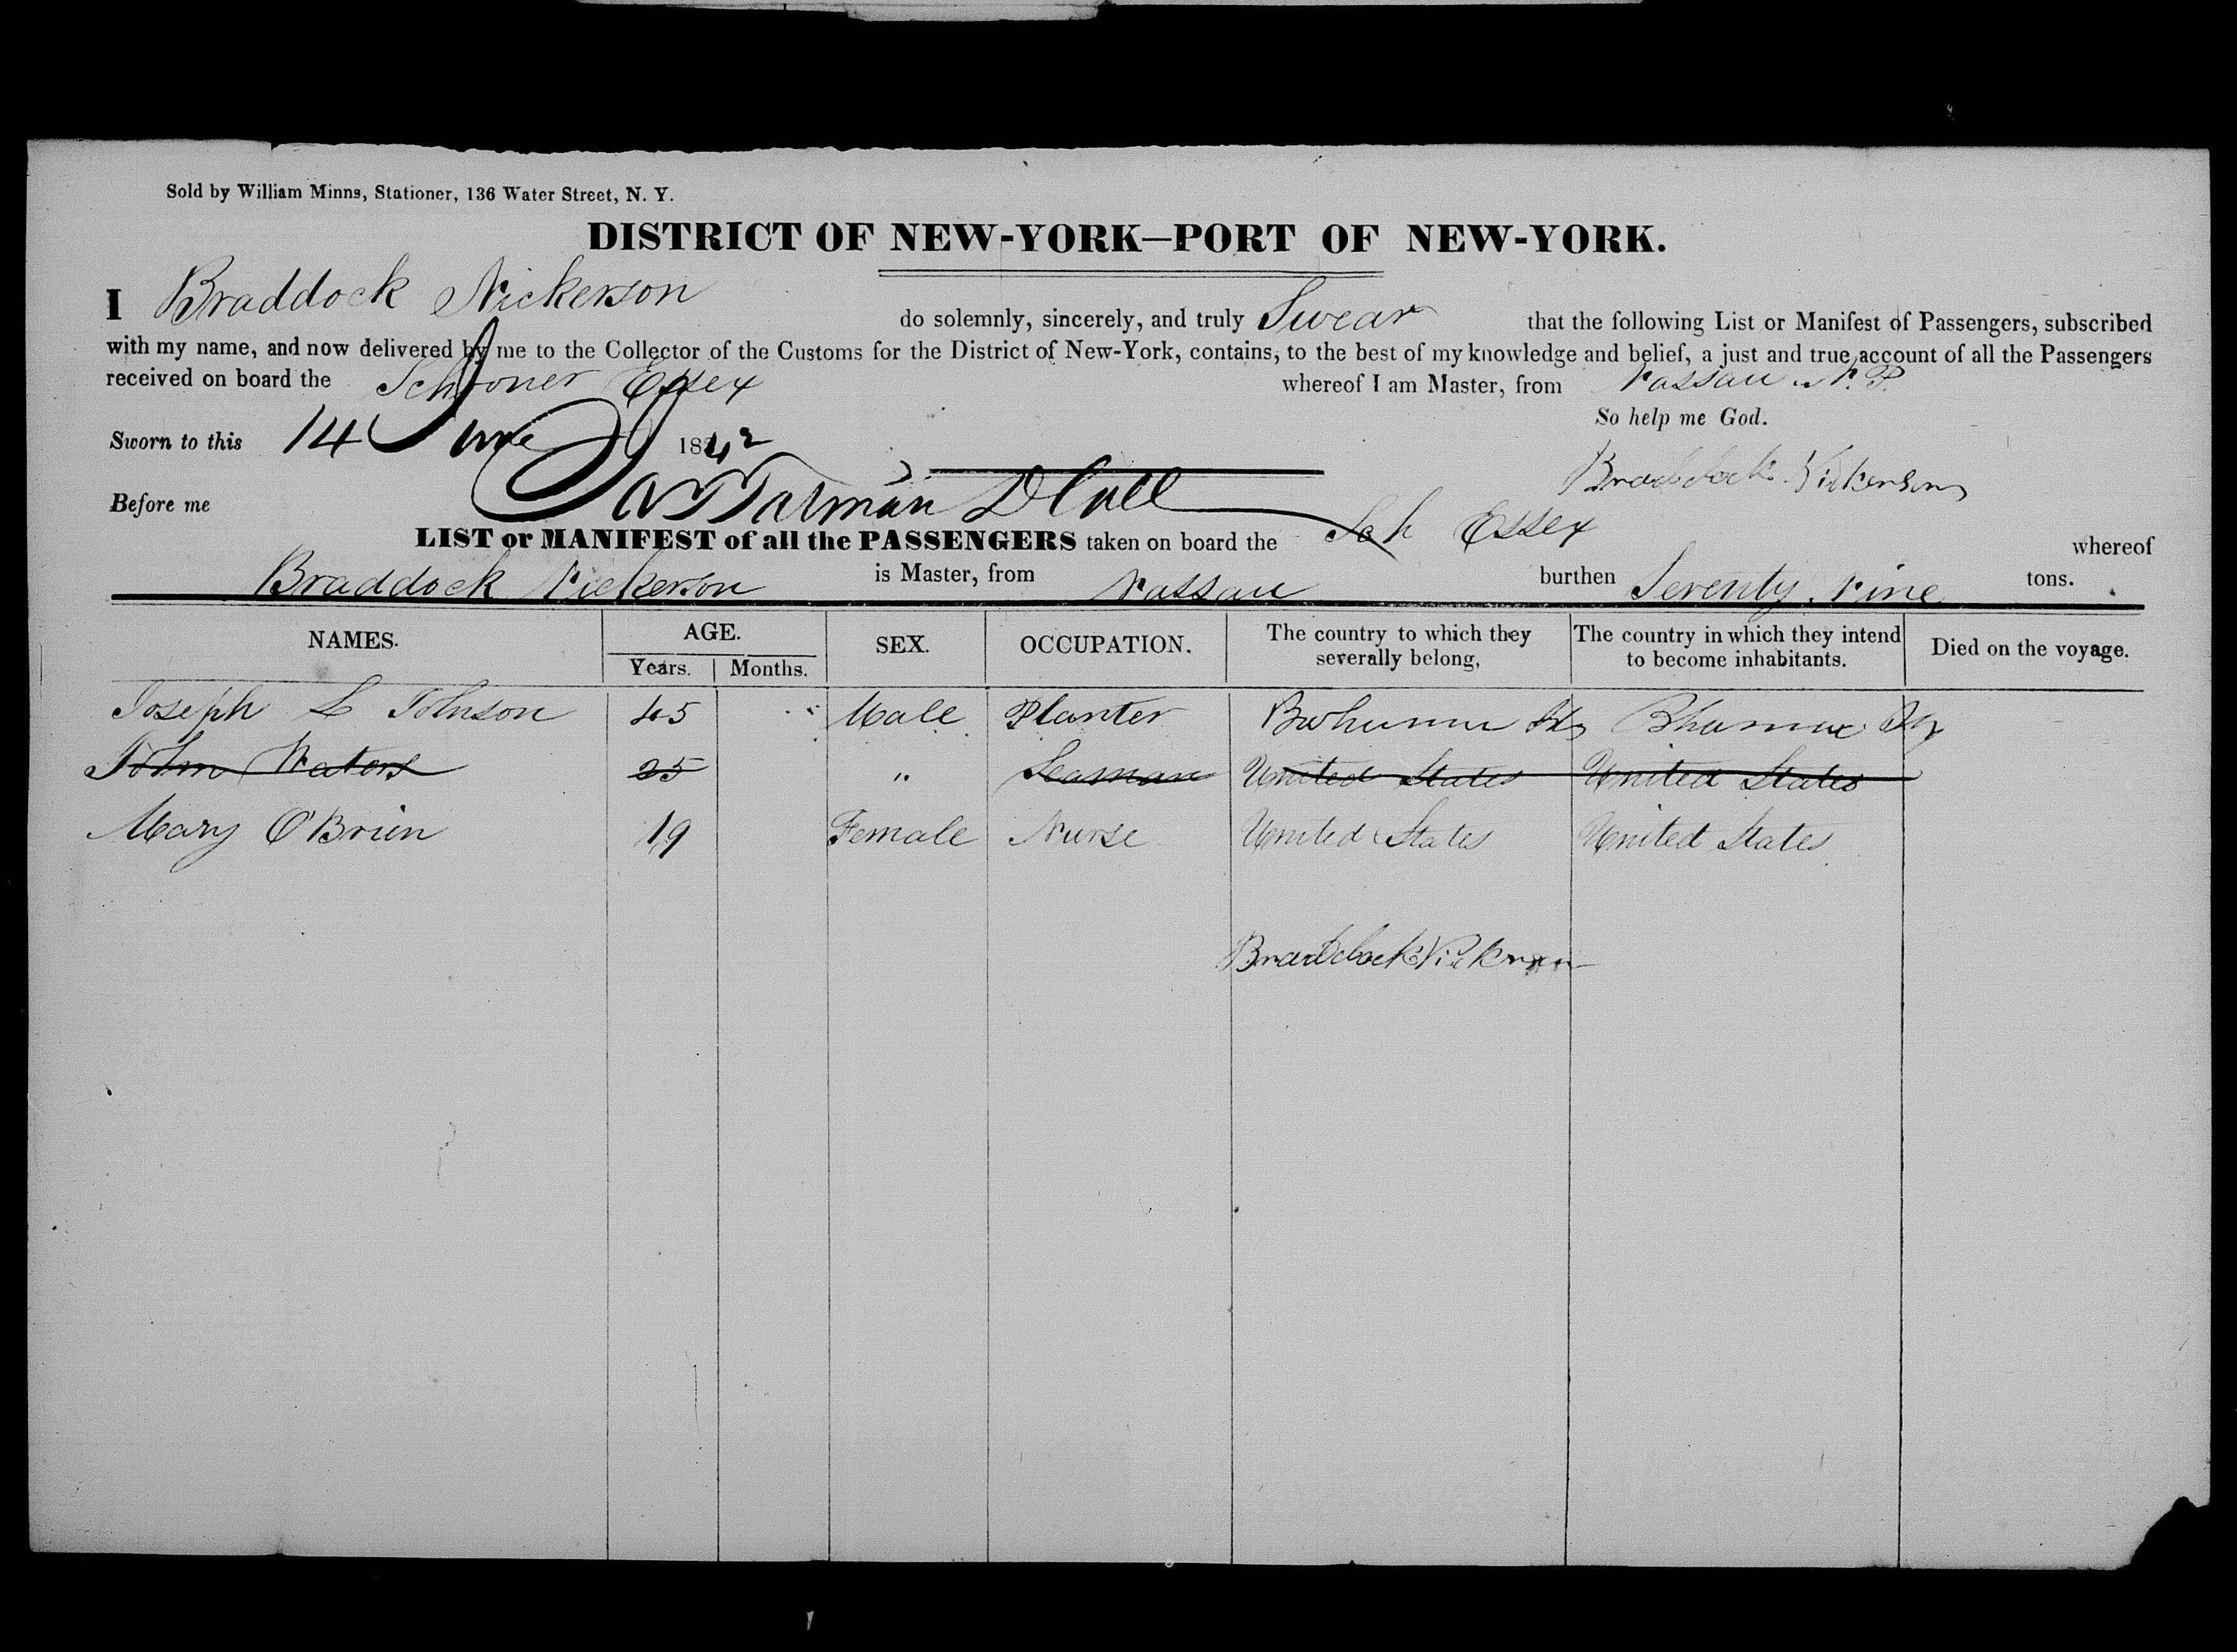 Sold by William Minns, Stationer, 136 Water Street, N. Y.
DISTRICT OF NEW-YORK—PORT OF NEW-YORK.
I Braddock Nickerson do solemnly, sincerely, and truly Swear that the following List or Manifest of Passengers, subscribed
with my name, and now delivered by me to the Collector of the Customs for the District of New-York, contains, to the best of my knowledge and belief, a just and true account of all the Passengers
received on board the Schooner Essex whereof I am Master, from Nassau N. P.
So help me God.
Sworn to this 14 June 1842
Braddock Nickerson
Before me
LIST or MANIFEST of all the PASSENGERS taken on board the Sch Essex whereof
Braddock Nickerson is Master, from Nassau burthen Seventy Nine tons.
NAMES. AGE. SEX. OCCUPATION. The country to which they severally belong, The country in which they intend to become inhabitants. Died on the voyage.
Years. Months.
Joseph L Johnson 45 Male Planter
John Waters 25 " Seaman United States United States
Mary O'Brien 19 Female Nurse United States United States
Braddock Nickerson